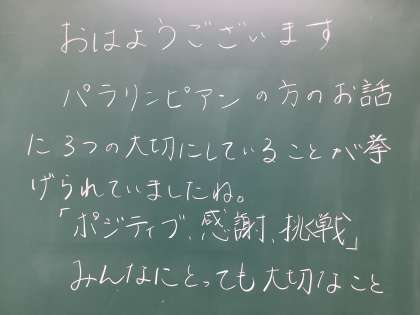 おはようございます
パラリンピアンの方のお話
に3つの大切にしていることが挙
げられていましたね。
「ポジティブ、感謝、挑戦」
みんなにとっても大切なこと